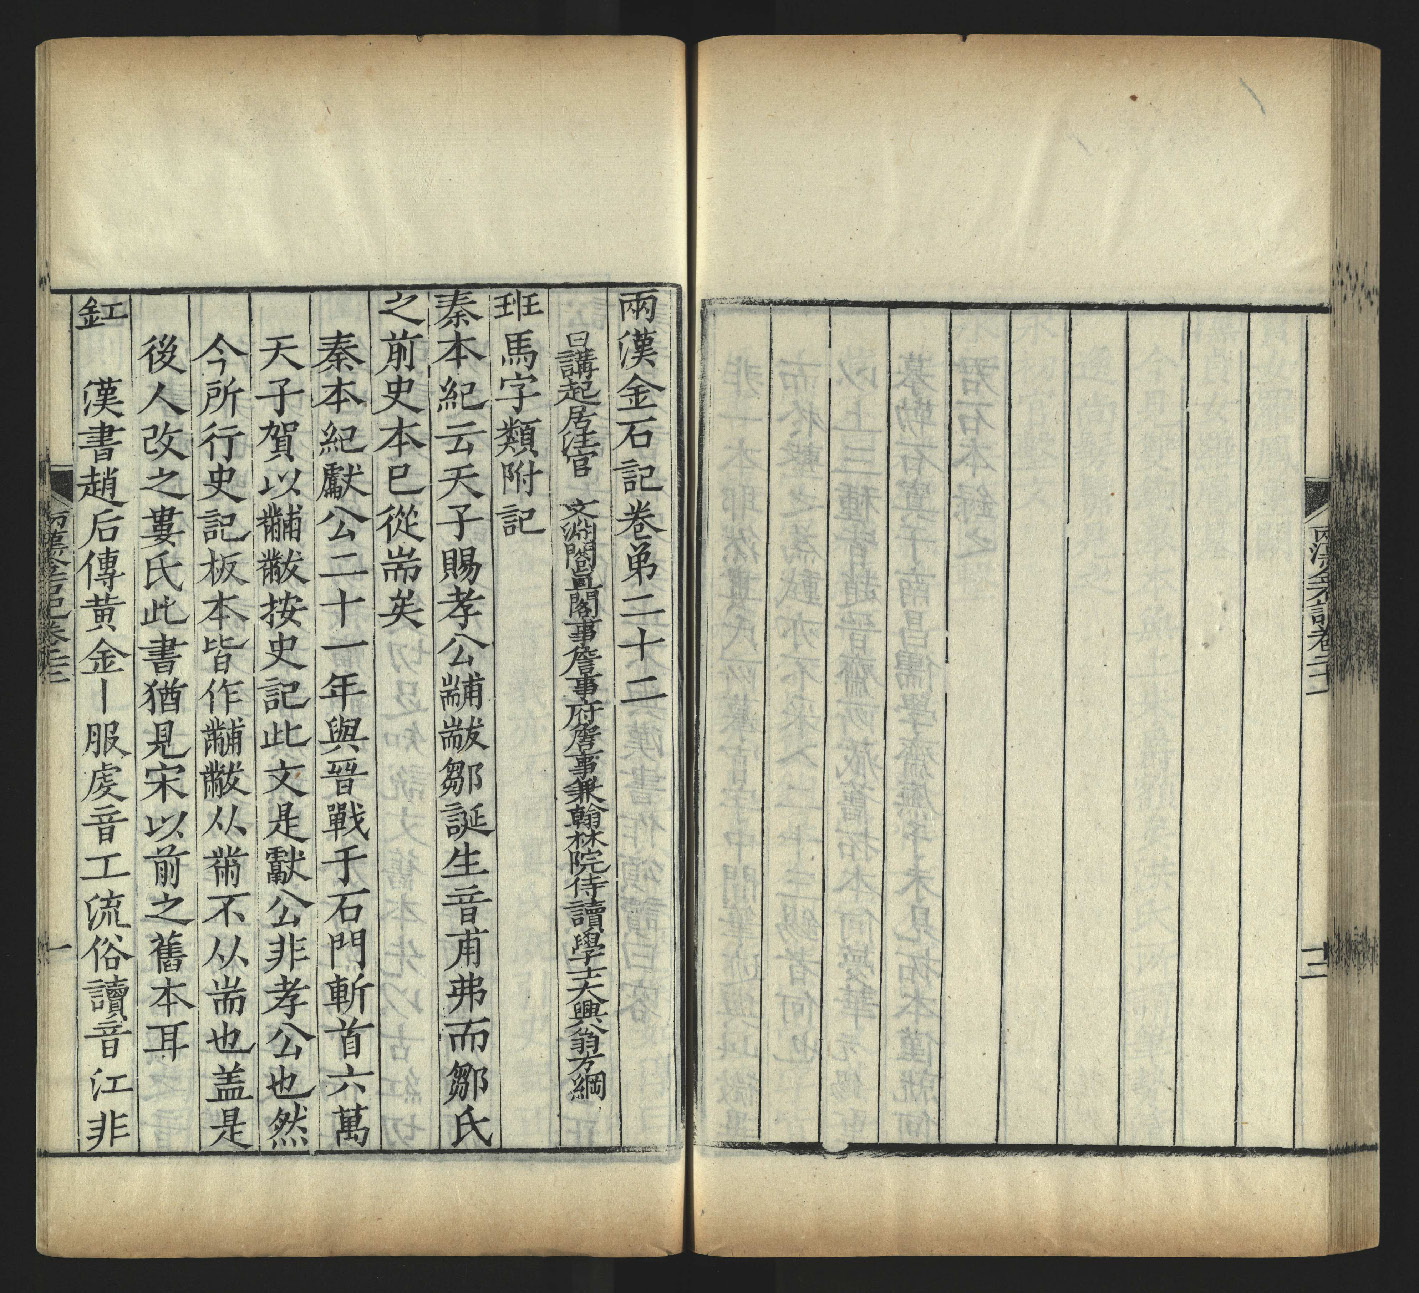 兩漢金石記卷二十一
十二
兩漢金石記卷弟二十二
日講起居注官 文淵閣直閣事詹事府詹事兼翰林院侍讀學士大興翁方綱
班馬字類附記
秦本紀云天子賜孝公黼黻鄒誕生音甫弗而鄒氏
之前史本已從耑矣
秦本紀獻公二十一年與晉戰于石門斬首六萬
天子賀以黼黻按史記此文是獻公非孝公也然
今所行史記板本皆作黼黻从黹不从耑也盖是
後人改之婁氏此書猶見宋以前之舊本耳
釭 漢書趙后傳黄金丨服虔音工流俗讀音江非
兩漢金石記卷二十二
一